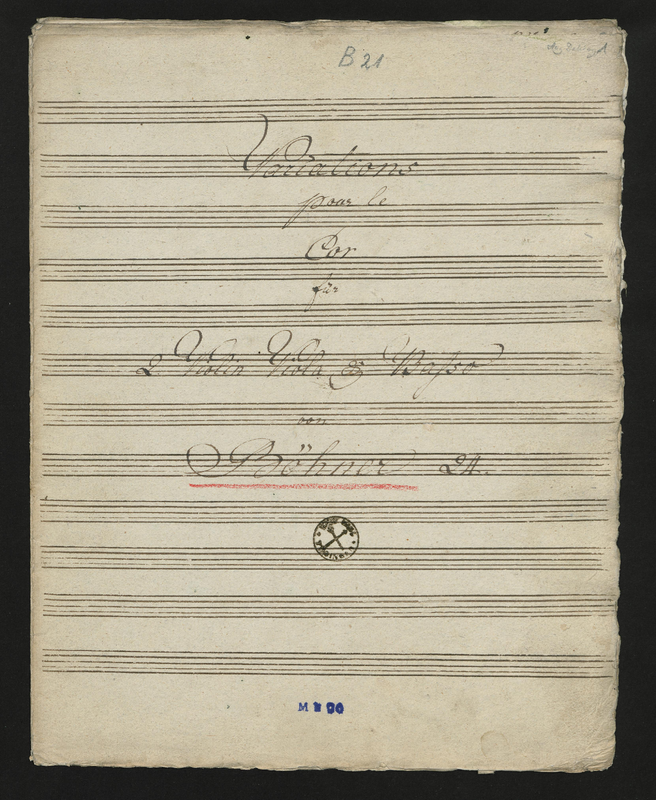 B 21
Variations
pour le
Cor
für
2 Violin Viola & Basso
von
Böhner 24.